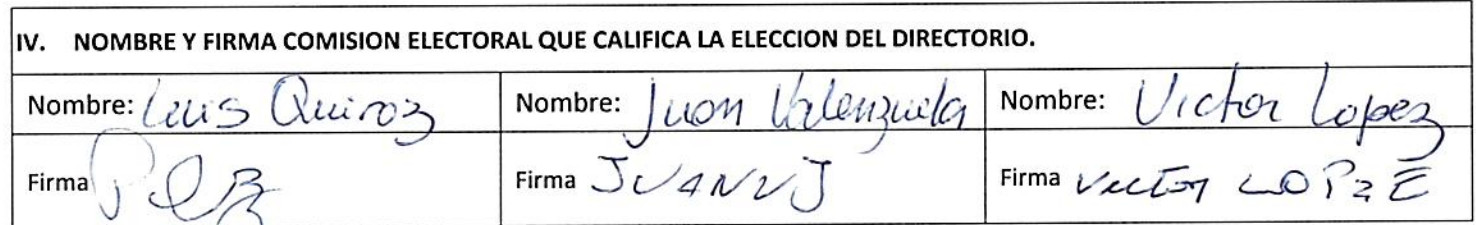 IV. NOMBRE Y FIRMA COMISION ELECTORAL QUE CALIFICA LA ELECCION DEL DIRECTORIO.
Nombre: Luis Quiroz Nombre: Juan Valenzuela Nombre: Victor Lopez
Firma Firma JUANVJ Firma